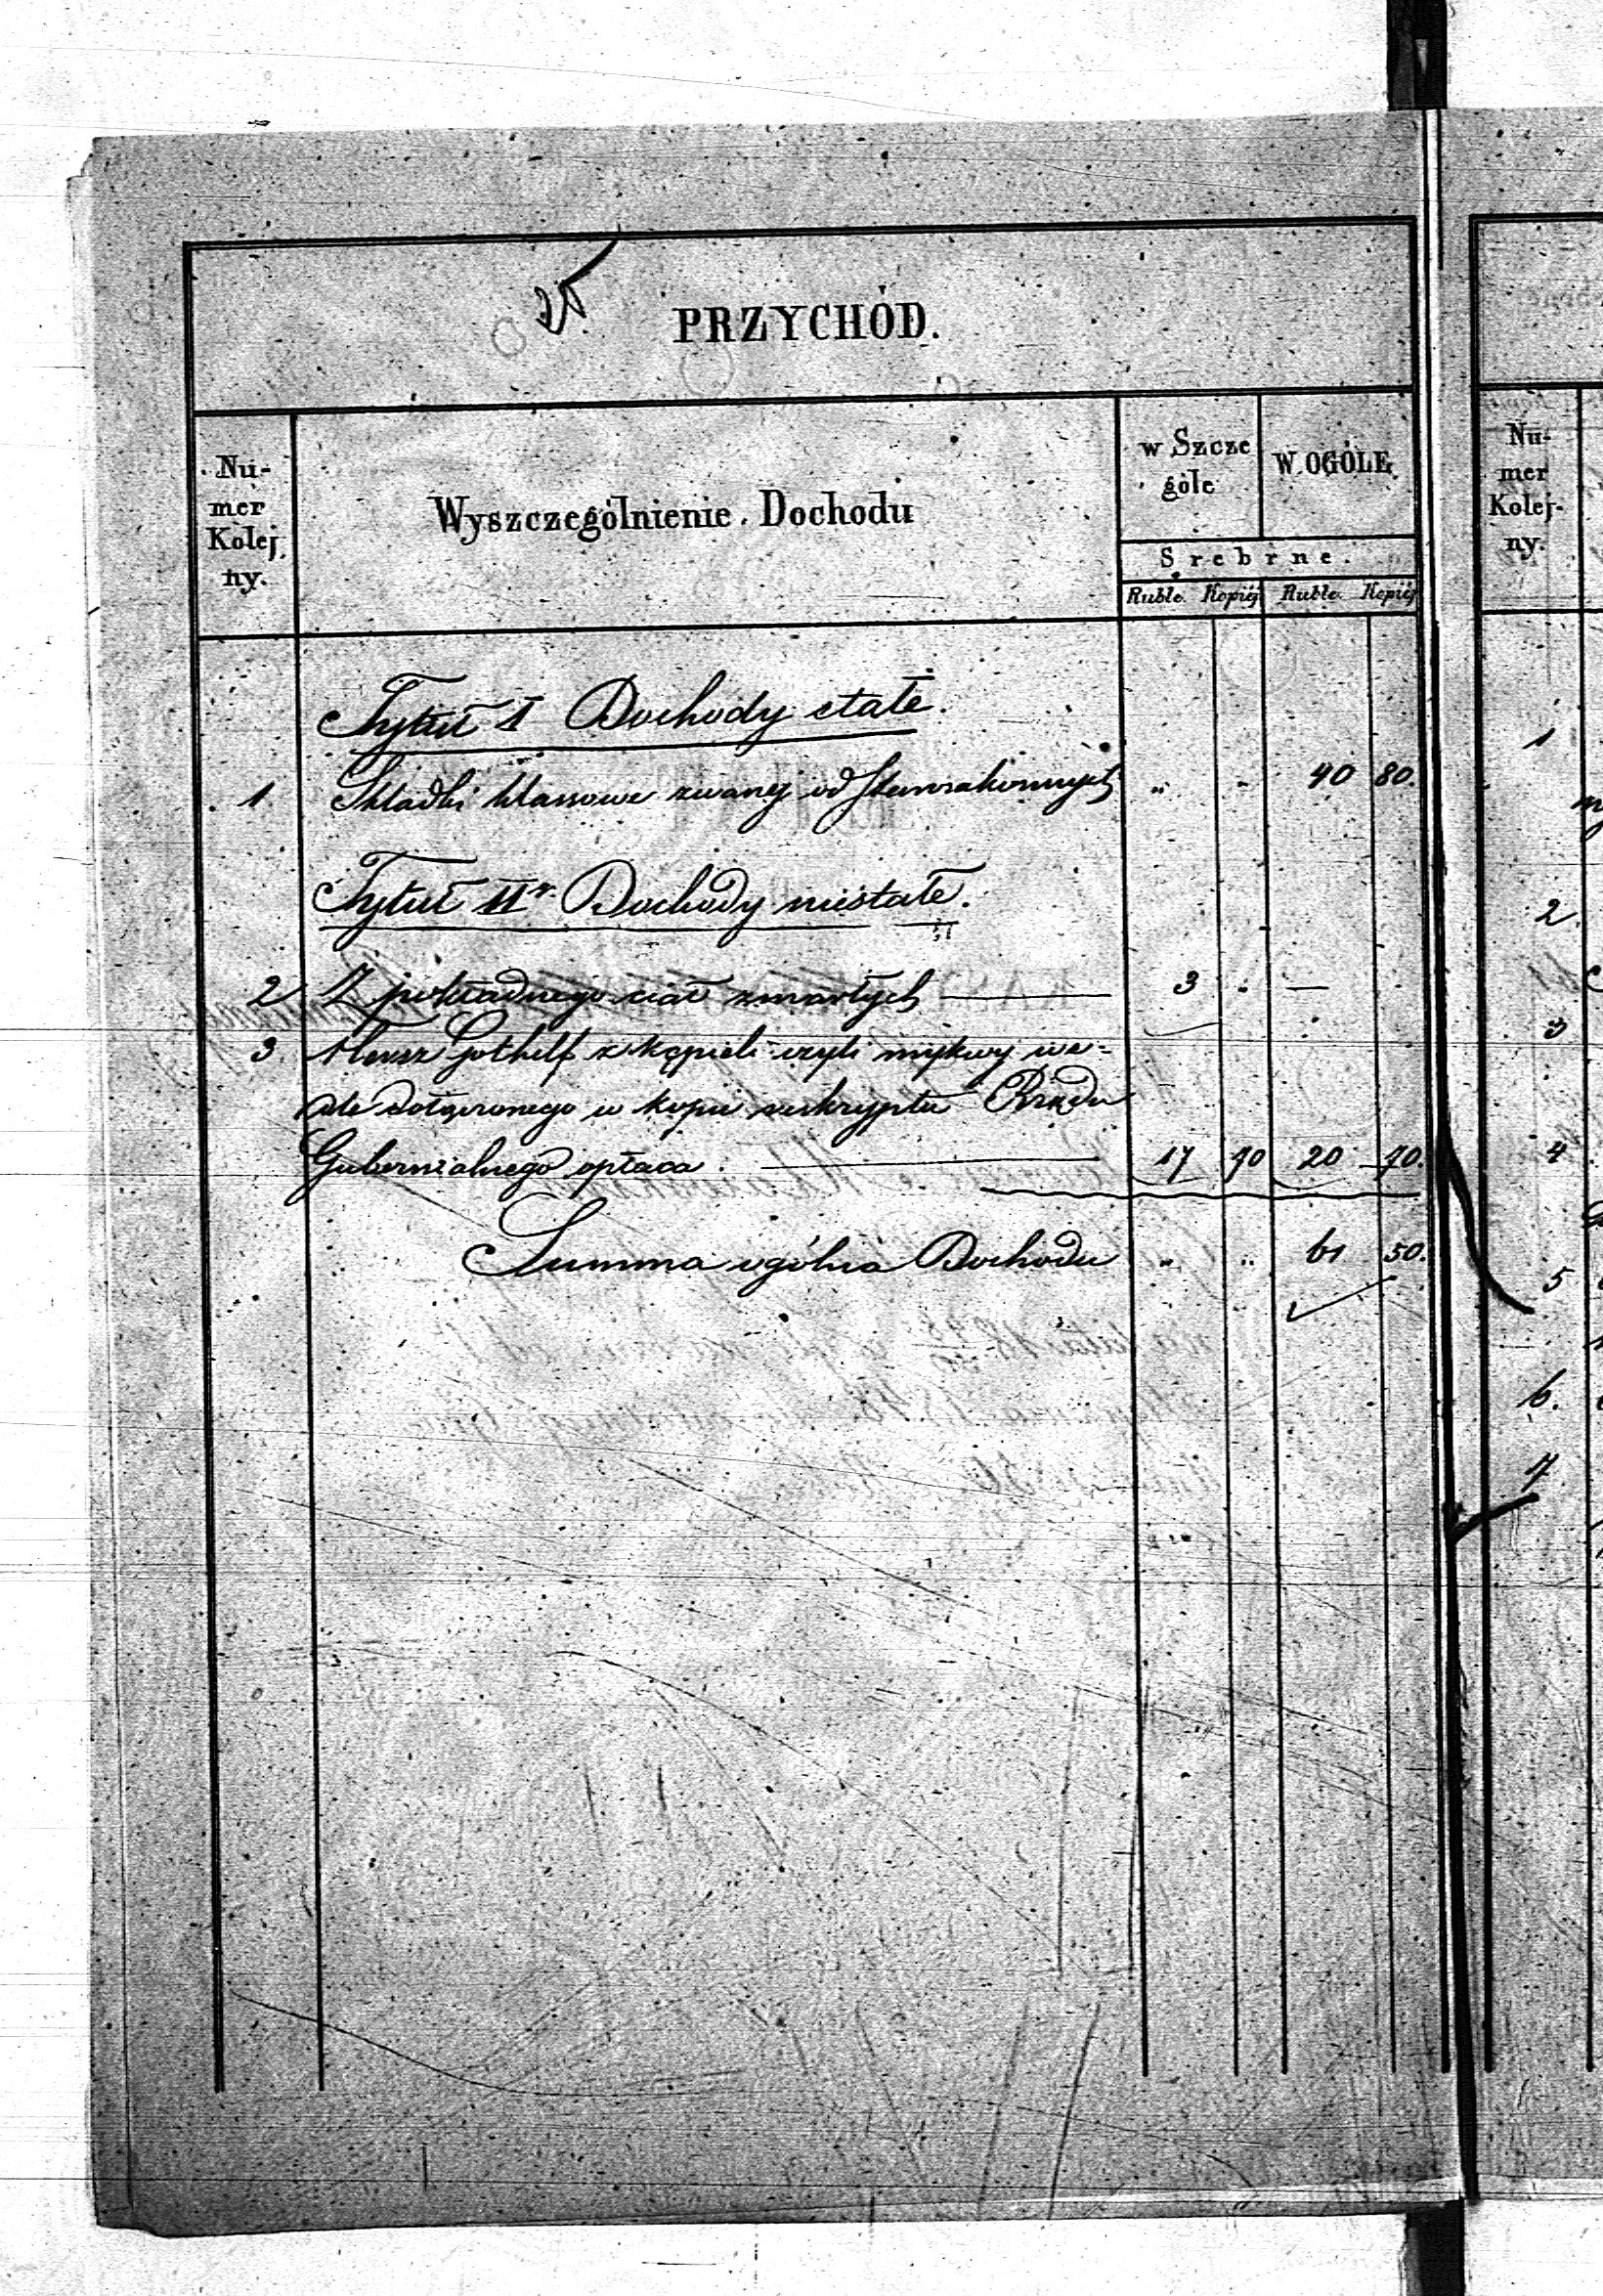 25
PRZYCHÓD.
Nu-
mer
Kolej
ny.
Wyszczególnienie Dochodu
w Szcze
góle
W OGÓLE
Srebrne.
Ruble. Kopiej Ruble. Kopiej
Tytuł I Dochody stałe.
1 Składki klassowe zwanej od Starozakonnych " " 40 80.
Tytuł IIr. Dochody niestałe.
2 Z pokładnego ciał zmarłych 3 . —
3. Herszr Gothelf z kąpieli czyli mykwy we-
dle dołączonego w kopii reskryptu Rządu
Gubernialnego opłaca. 17 70 20 70.
Summa ogólna Dochodu " " 61 50.
Nu-
mer
Kolej-
ny.
1
2
3
4
5
6.
7